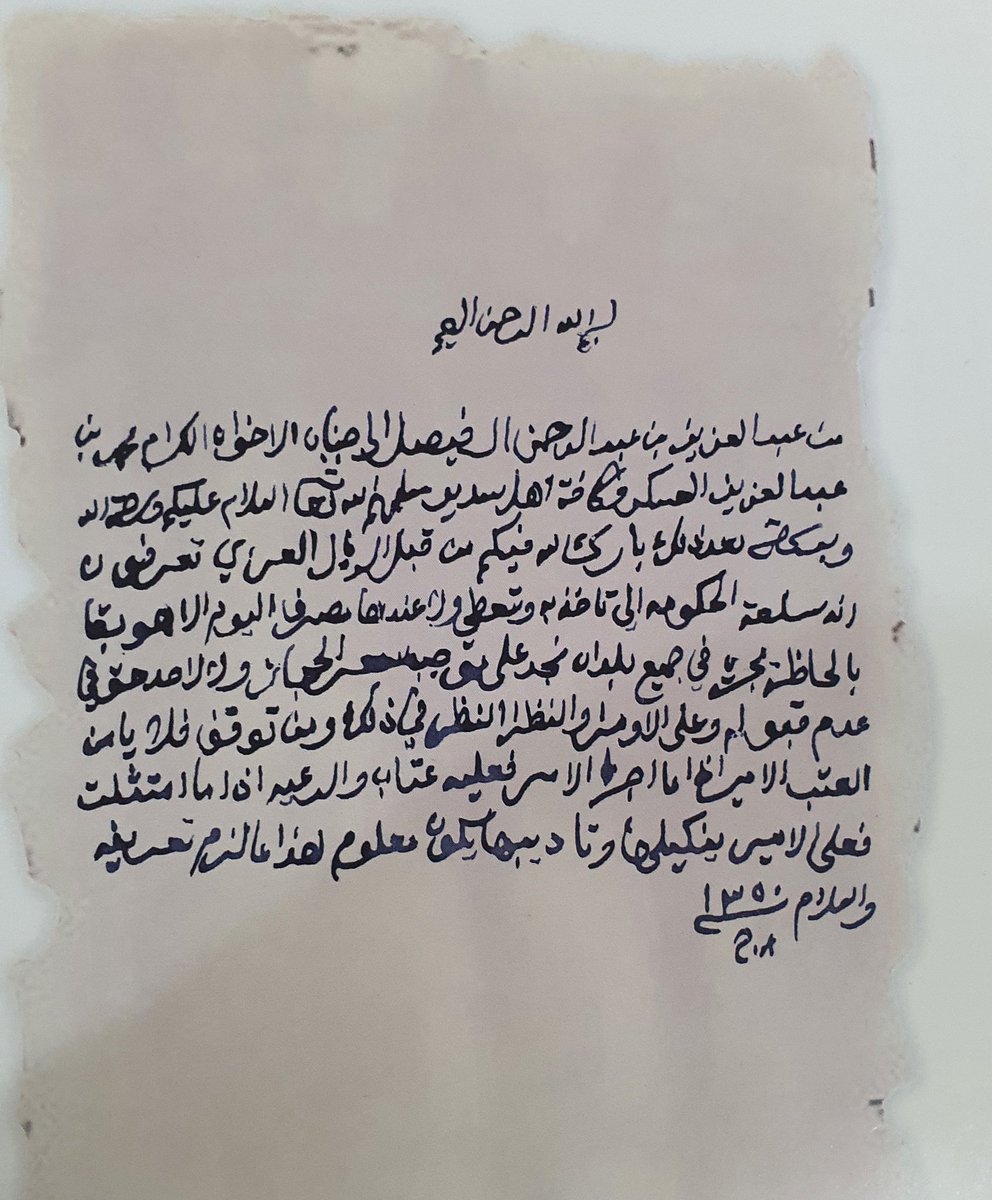 بسم الله الرحمن الرحيم
من عبد العزيز بن عبد الرحمن ال فيصل الى جناب الاخوان الكرام محمد بن
عبد العزيز العسكر وكافة اهل سدير سلمهم الله تعالى السلام عليكم ورحمة الله
وبركاته بعد ذلك بارك الله فيكم من قبل الريال العربي تعرفون
انه سلعة الحكومه الي تاخذ به وتعطي ولا عندها مصرف اليوم الا هو
في جميع بلدان نجد على ولا لاحد حق في
عدم قبوله وعلى الامرا والنظرا النظر في ذلك ومن توقف فلا يامن
العتب الامير اذا ما اجرا الامر فعليه عتاب والرعيه اذا ما امتثلت
فعلى الامير ينكيلها وتاديبها يكون معلوم هذا ما لزم تعريفه
والسلام ١٣٥٠